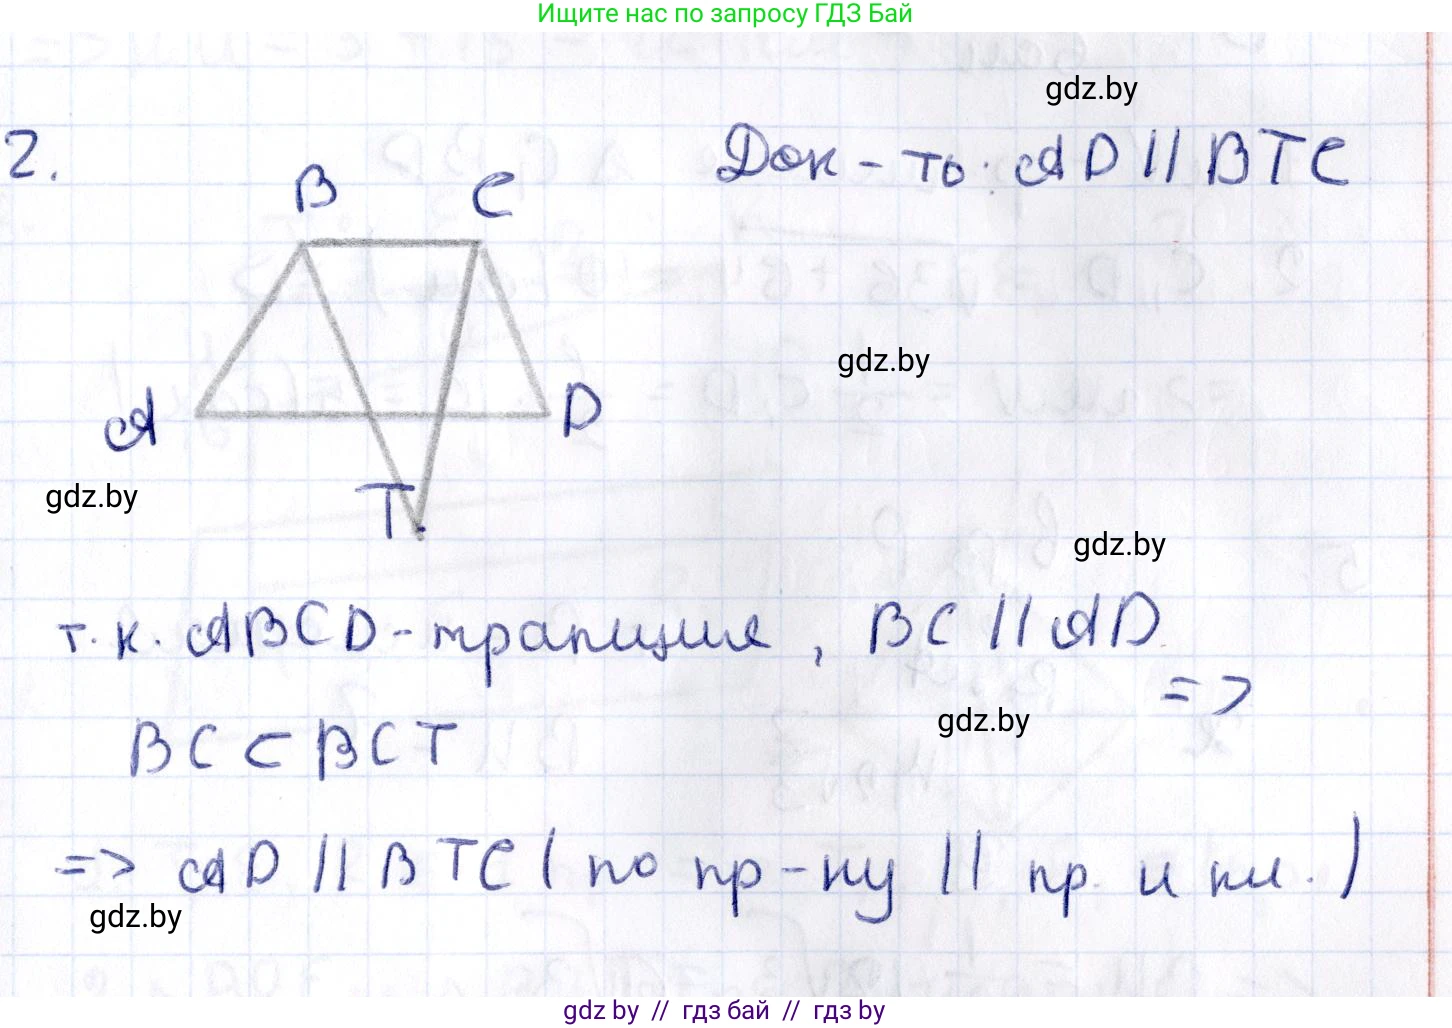 Ищите нас по запросу ГДЗ Бай
gdz.by
2.
Док-ть: AD || BTC
B C
gdz.by
A D
gdz.by
T
gdz.by
т.к. ABCD - трапиция, BC || AD
=>
gdz.by
BC ⊂ BCT
=> AD || BTC (по пр-ку || пр. и пл.)
gdz.by
gdz by // гдз бай // гдз by